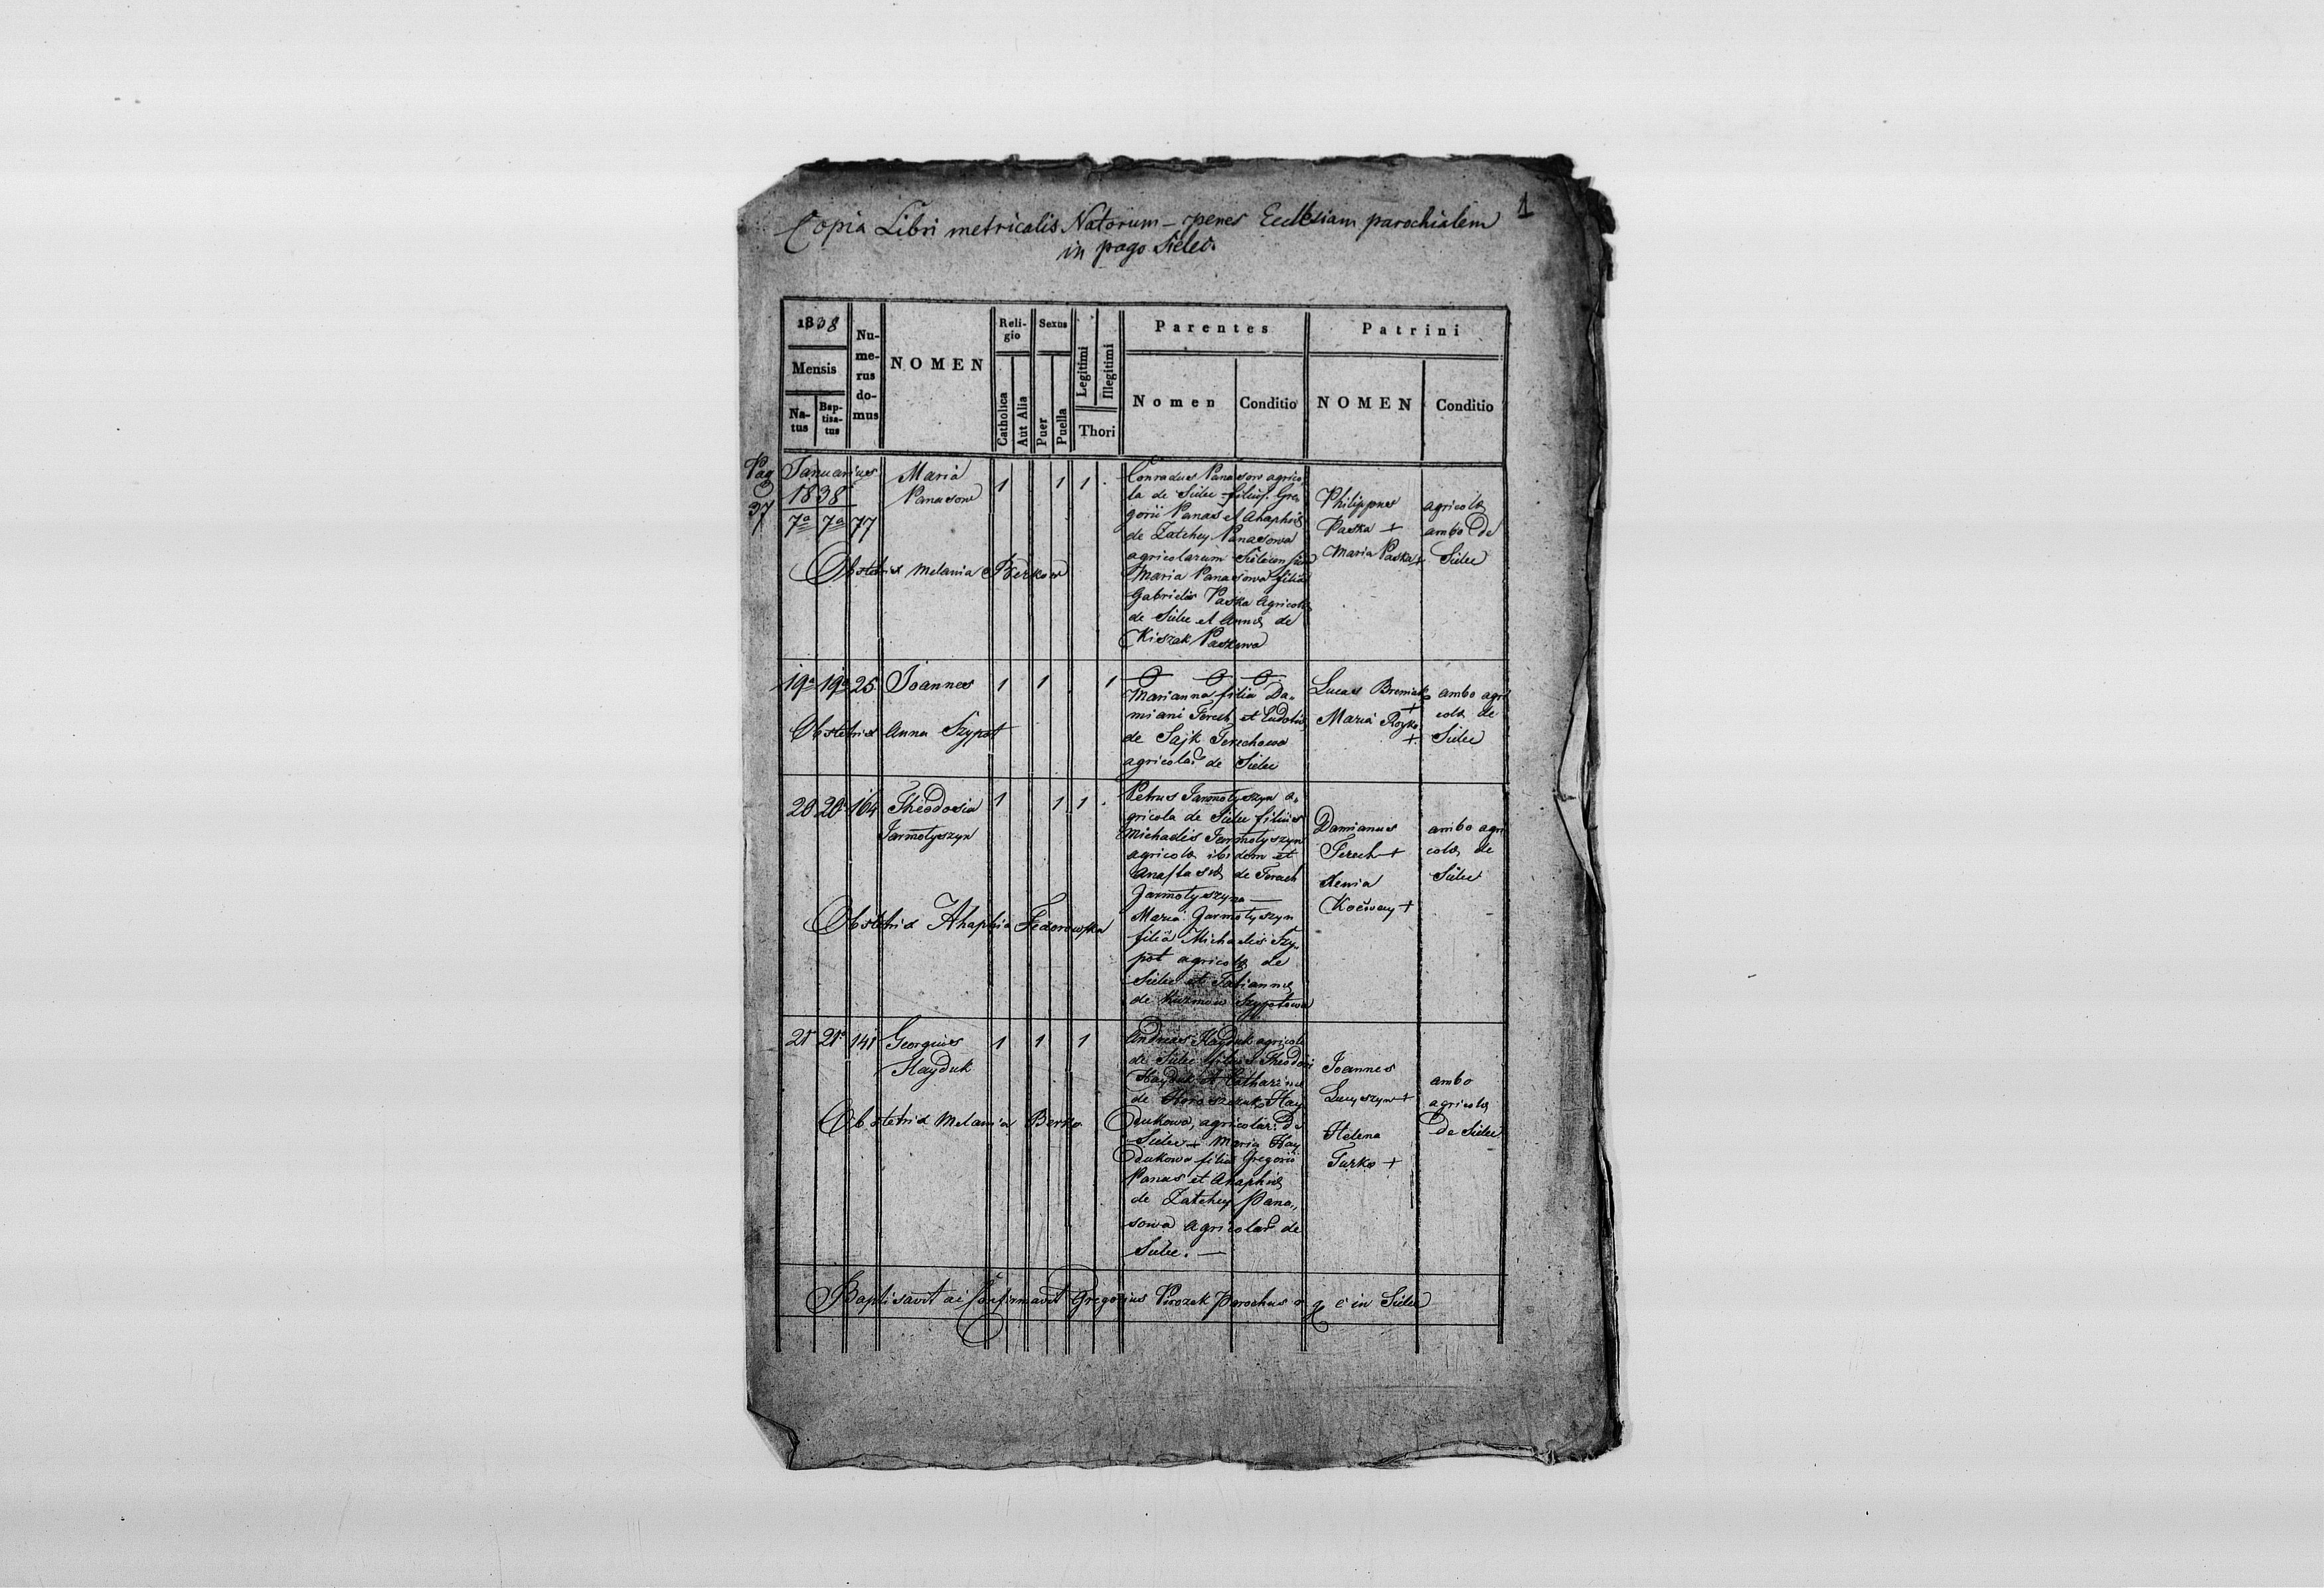 1
Copia Libri metricalis Natorum – penes Ecclesiam parochialem
in pago Sielec.
1838
Mensis
Na-
tus
Bap-
tisa-
tus
Nu-
me-
rus
do-
mus
NOMEN
Reli-
gio
Catholica
Aut Alia
Sexus
Puer
Puella
Legitimi
Illegitimi
Thori
Parentes
Nomen
Conditio
Patrini
NOMEN
Conditio
Pag
37
Januarius
1838
7a 7a 77
Maria
Panasow
1 1 1
Conradus Panasow agrico,
la de Sielec filius Gre,
gorii Panas et Ahaphiæ
de Zatchey Panasowa
agricolarum
Maria Panasowa filia
Gabrielis Paska Agricolæ
de Sielec et Annæ de
Kiszak Paskowa
Philippus
Paska +
Maria Paska +
agricolæ
ambo de
Sielec
Obstetrix Melania Berkow
19a 19a 25 Joannes 1 1 1
Marianna filia Da„
miani Terech et
de Sajk Terechowa
agricolar de Sielec
Lucas
+
Maria
+
ambo agri
colæ de
Sielec
Obstetrix Anna Szypot
20 20 164 Theodosia
Jarmotyszyn
1 1 1
Petrus Jarmotyszyn a„
gricola de Sielec filius
Michaelis Jarmotyszyn
agricolæ ibidem et
Anastasiæ de Terech
Jarmotyszyna —
Maria Jarmotyszyn
filia Michaelis Szy„
pot agricolæ de
Sielec et Tatiannæ
de Kuzmow Szypotowa
Damianus
Terech +
Xenia
+
ambo agri
colæ de
Sielec
Obstetrix Ahaphia Fedorowska
21 21 141 Georgius
Hayduk
1 1 1
Andreas Hayduk agricola
de Sielec filius Theodori
Hayduk et Catharinæ
de Hay
dukowa, agricolar. de
Sielec + Maria Hay
dukowa filia Gregorii
Panas et Ahaphiæ
de Zatchey Pana„
sowa agricolar de
Sielec. —
Joannes
Lucyszyn +
Helena
Turko +
ambo
agricolæ
de Sielec
Obstetrix Melania Berko
Baptisavit ac Confirmavit Gregorius Pirozek Parochus r. g. c. in Sielec